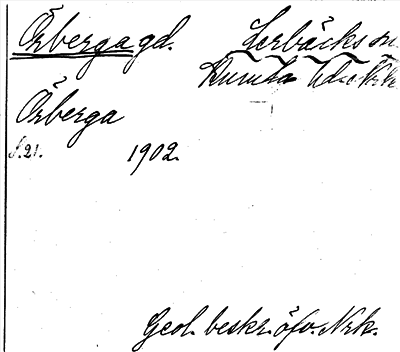 Örberga gd. Lerbäcks sn.
Kumla hd. Nrk.
Örberga
s. 21. 1902.
Geol. beskr. öfv. Nrk.